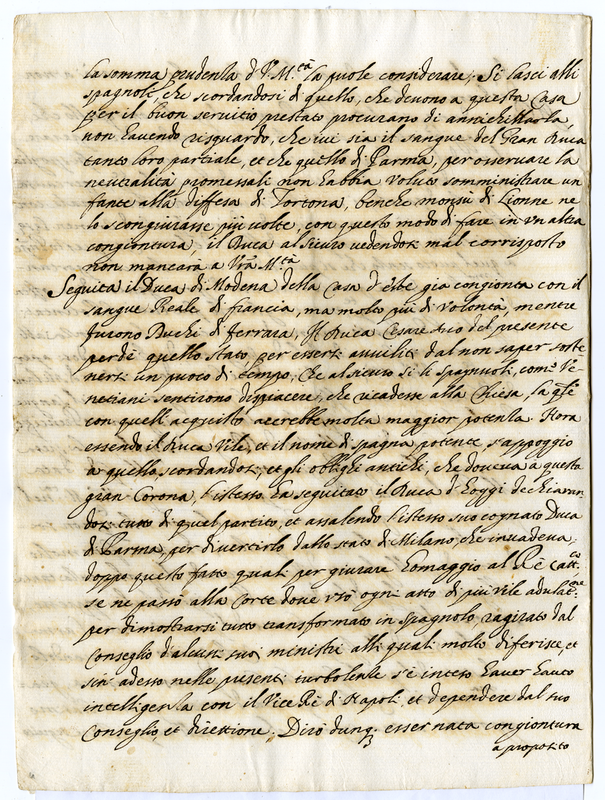 la somma prudenza d V. M.tà la puole considerare; Si lasci alli
spagnoli, che scordandosi di quello, che devono a questa Casa
per il buon servitio prestato procurano di annichillarla,
non havendo risguardo, che ivi sia il sangue del Gran Duca
tanto loro partiale, et che quello di Parma, per osservare la
neutralità promessali non habbia voluto somministrare un
fante alla diffesa di Tortona, benche monsu di Lionne ne
lo scongiurasse più volte, con questo modo di fare in un altra
congiontura, il Duca al sicuro vedendosi mal corrisposto
non mancarà a Vra M.tà
Seguita il Duca di Modena della Casa d'este già congionta con il
sangue Reale di francia, ma molto più di volontà, mentre
furono Duchi di ferrara, Il Duca Cesare Avo del presente
perdè quello stato per essersi avviliti dal non saper soste
nersi un puoco di tempo, che al sicuro si li spagnuoli, come Ve
netiani sentirono dispiacere, che ricadesse alla Chiesa, la qle
con quell'acquisto accrebbe molta maggior potenza. Hora
essendo il Duca Vile, et il nome di spagna potente, s'appoggiò
a quello, scordandosi, et gli oblighi antichi, che doveva a questa
gran Corona, l'istesso ha seguitato il Duca d'hoggi dechiaran
dosi tutto di quel partito, et assalendo l'istesso suo cognato Duca
di Parma, per divertirlo dallo stato di Milano, che invadeva;
doppo questo fatto quasi per giurare homaggio al Rè Catt.co
se ne passò alla Corte dove usò ogni atto di più vile adulat.ne
per dimostrarsi tutto transformato in spagnolo ragirato dal
Conseglio d'alcuni suoi ministri alli quali molto diferisce, et
sin' adesso nelle presenti turbolenze s'è inteso haver havuto
intelligenza con il Vice Rè di Napoli, et dependere dal suo
Conseglio et direttione; Dirò dunq. esser nata congiontura
a proposito